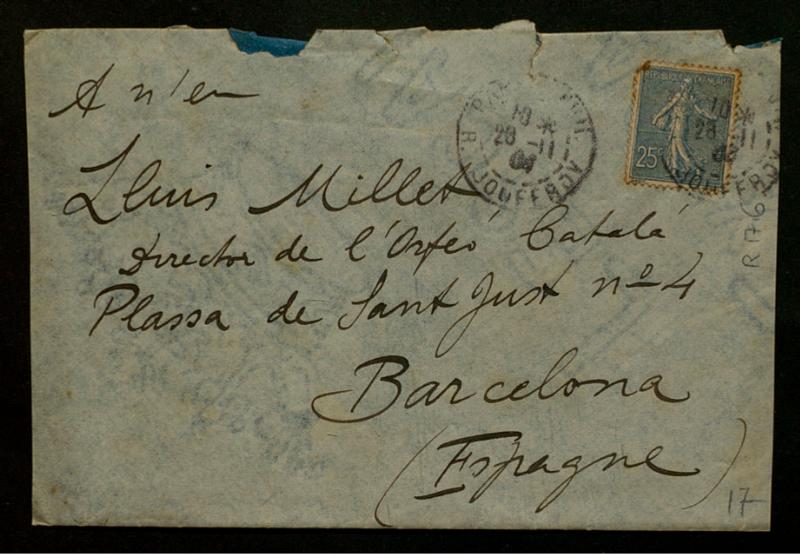 A n'en
Lluis Millet
Director de l'Orfeó Catalá
Plassa de Sant Just nº 4
Barcelona
(Espagne)
REPUBLIQUE FRANÇAISE
25c
PARIS
10 *
28 -11
R. JOUFFROY
10 *
28 -11
JOUFFROY
R 176
17